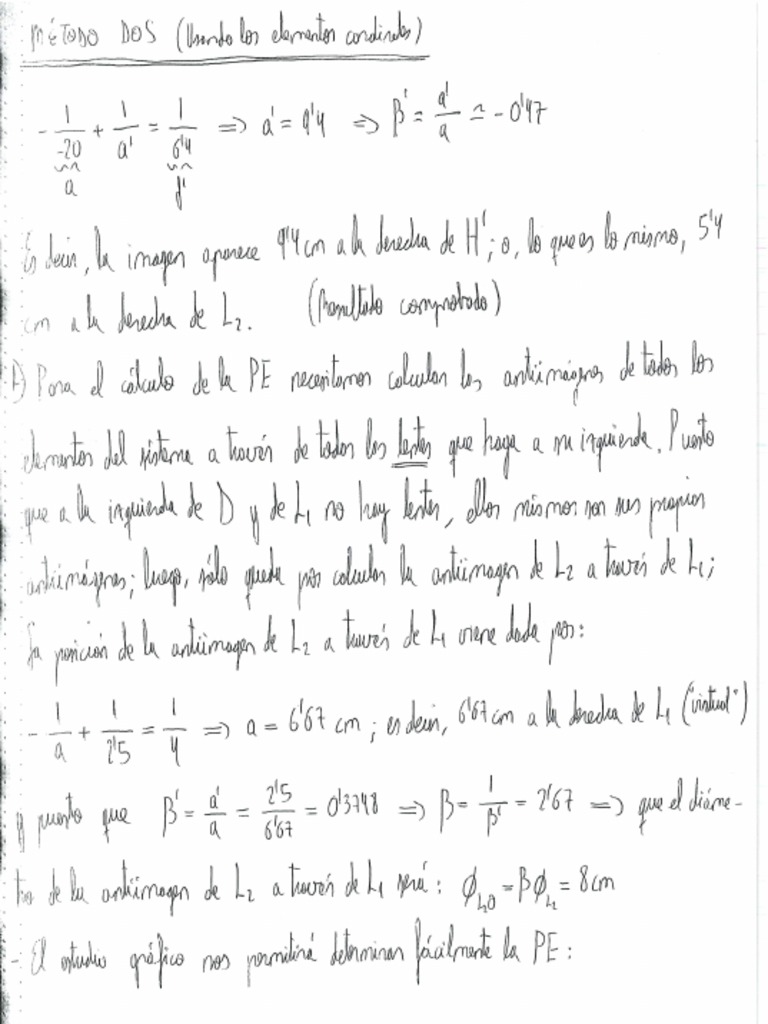 MÉTODO DOS (Usando los elementos cardinales)
- 1/-20 + 1/a' = 1/6'4 ⇒ a' = 9'4 ⇒ β' = a'/a ≃ - 0'47
a f'
Es decir, la imagen aparece 9'4 cm a la derecha de H'; o, lo que es lo mismo, 5'4
cm a la derecha de L₂. (Resultado comprobado)
Para el cálculo de la PE necesitamos calcular las antiimágenes de todos los
elementos del sistema a través de todas las lentes que haya a su izquierda. Puesto
que a la izquierda de D y de L₁ no hay lentes, ellos mismos son sus propias
antiimágenes; luego, sólo queda por calcular la antiimagen de L₂ a través de L₁;
La posición de la antiimagen de L₂ a través de L₁ viene dada por:
- 1/a + 1/2'5 = 1/4 ⇒ a = 6'67 cm; es decir, 6'67 cm a la derecha de L₁ ("virtual")
y puesto que β' = a'/a = 2'5/6'67 = 0'3748 ⇒ β = 1/β' = 2'67 ⇒ que el diáme-
tro de la antiimagen de L₂ a través de L₁ será: ϕ = β ϕ = 8 cm
- El estudio gráfico nos permitirá determinar fácilmente la PE: